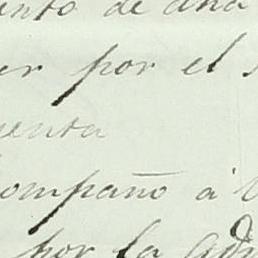 ento de una
er por el
uenta
ompaño a
por la